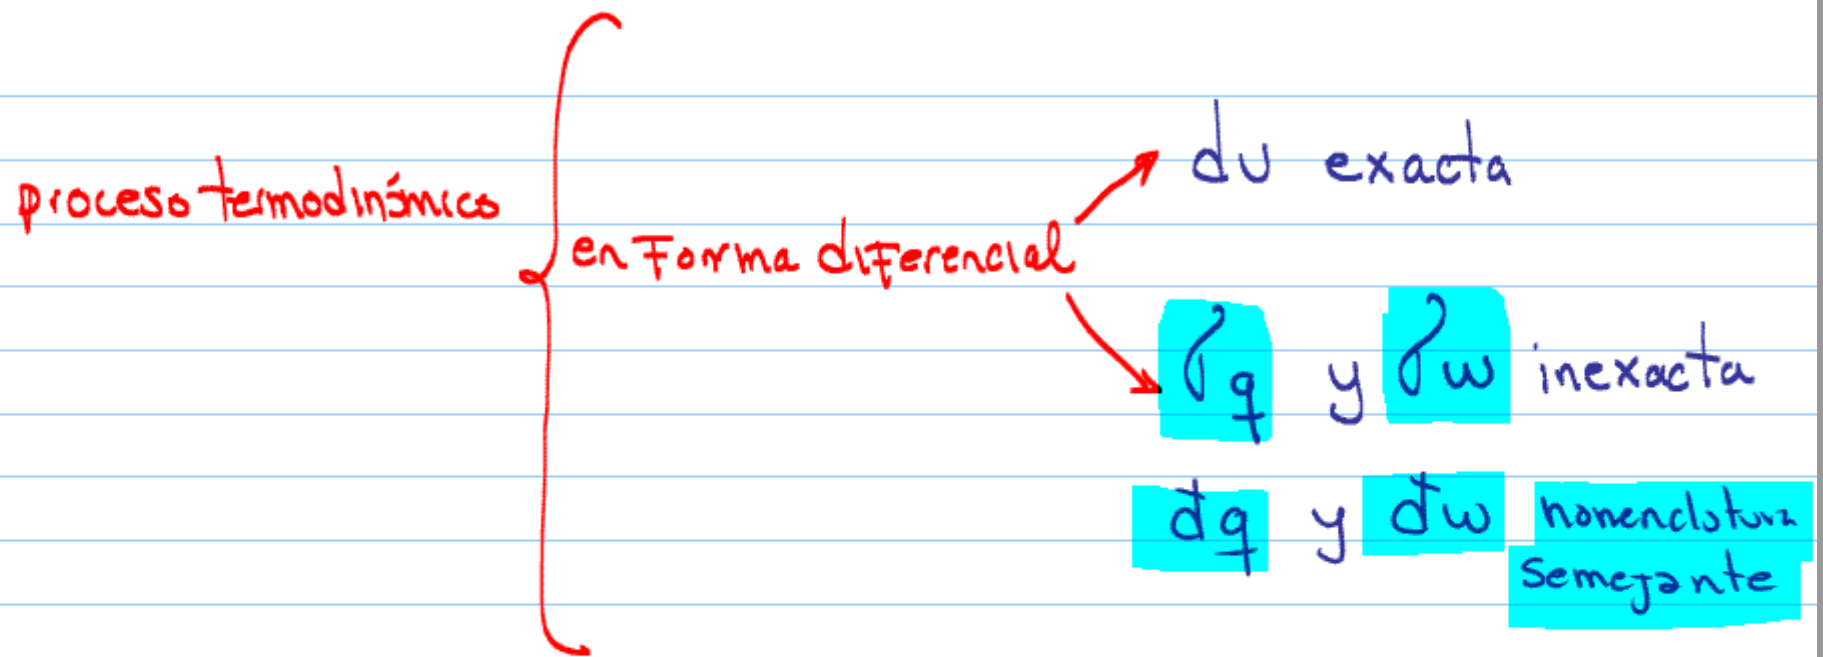 proceso termodinámico
en Forma diferencial
du exacta
δq y δw inexacta
đq y đw nomenclatura
semejante